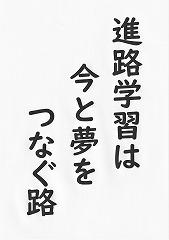 進路学習は
今と夢を
つなぐ路